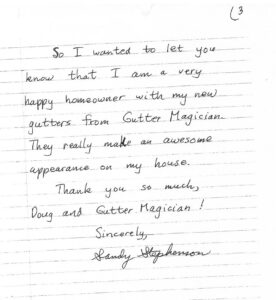 (3
So I wanted to let you
know that I am a very
happy homeowner with my new
gutters from Gutter Magician.
They really make an awesome
appearance on my house.
Thank you so much,
Doug and Gutter Magician!
Sincerely,
Sandy Stephenson